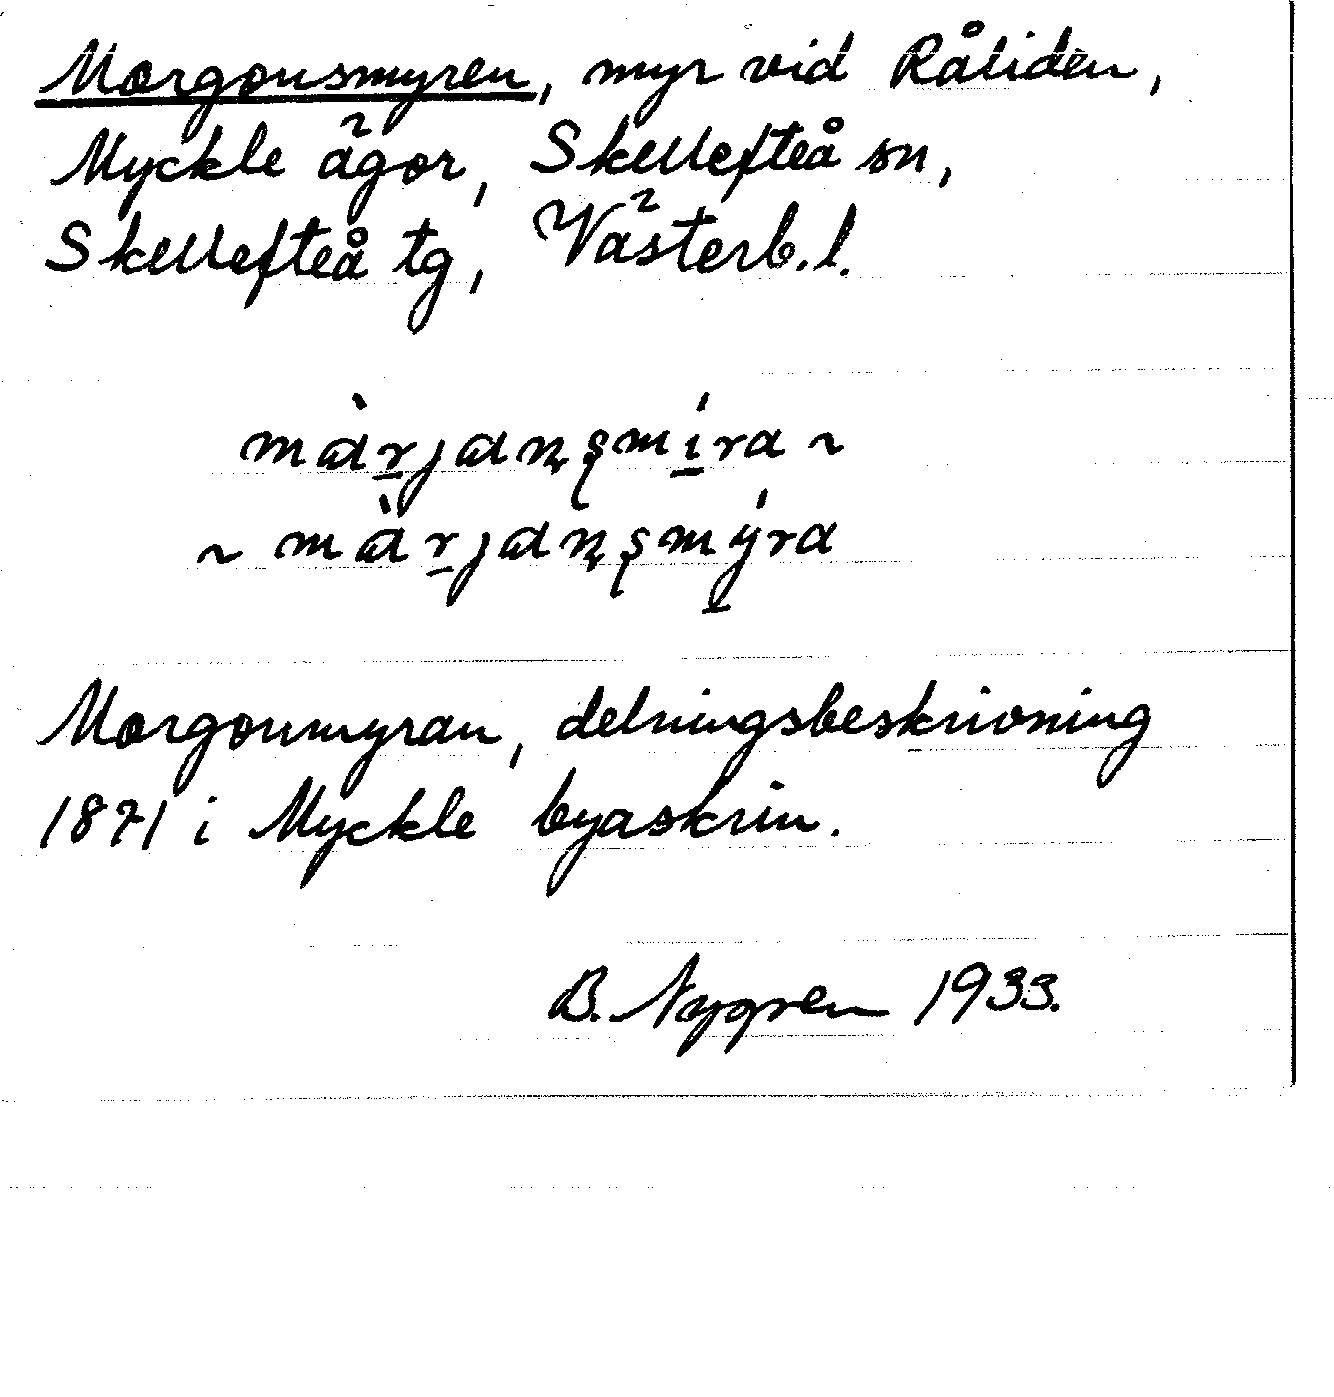 Morgonsmyren, myr vid Råliden,
Myckle ägor, Skellefteå sn,
Skellefteå tg, Västerb. l.
mà̱rjaṇṣmí̱ra ~
~ mà̱rjaṇṣmý̱ra
Morgonmyran, delningsbeskrivning
1871 i Myckle byaskrin.
B. Nygren 1933.